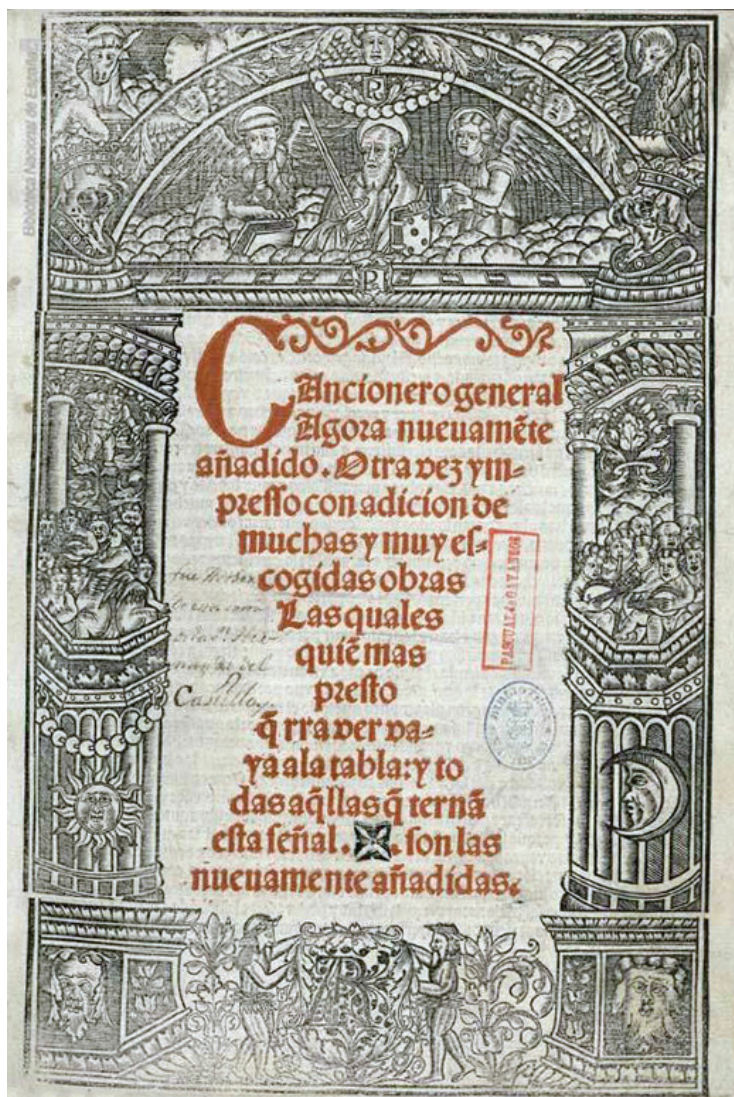 Biblioteca Nacional de España
R
P
CAncionero general
Agora nueuamẽte
añadido. Otra vez ym-
presso con adicion de
muchas y muy es-
cogidas obras
Las quales
quiẽ mas
presto
q̃rra ver va-
ya a la tabla: y to
das aq̃llas q̃ ternã
esta señal. . son las
nueuamente añadidas.
PASCUAL de GAYANGOS
fue
Castillo